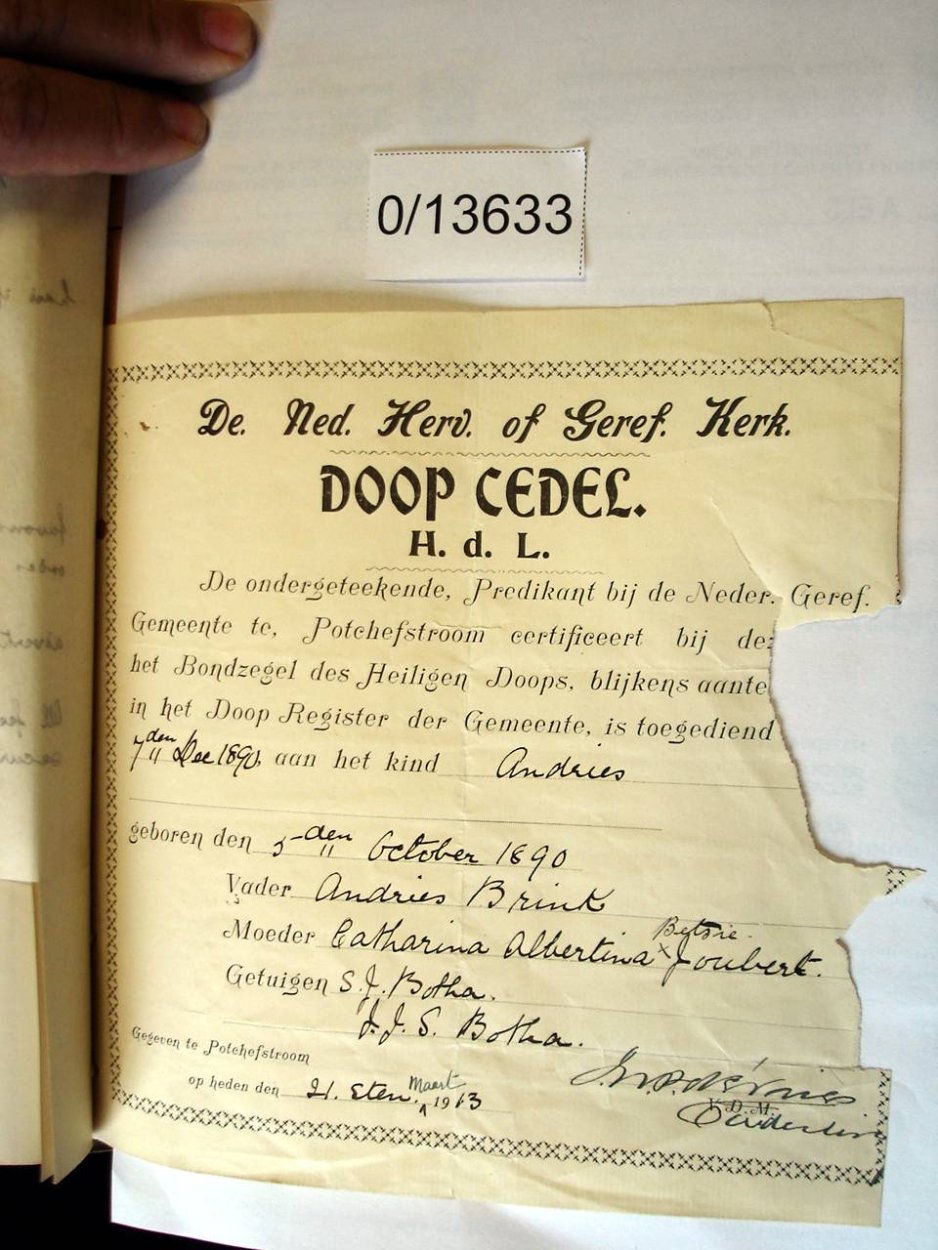 0/13633
De. Ned. Herv. of Geref. Kerk.
DOOP CEDEL.
H. d. L.
De ondergeteekende, Predikant bij de Neder. Geref.
Gemeente te, Potchefstroom certificeert bij de
het Bondzegel des Heiligen Doops, blijkens aante
in het Doop Register der Gemeente, is toegediend
7den Dec 1890, aan het kind Andries
geboren den 5-den October 1890
Vader Andries Brink
Betsie
Moeder Catharina Albertina x Joubert.
Getuigen S. J. Botha.
J. J. S. Botha.
Gegeven te Potchefstroom
Maart
op heden den 21. Sten. ^ 1913
V. D. M.